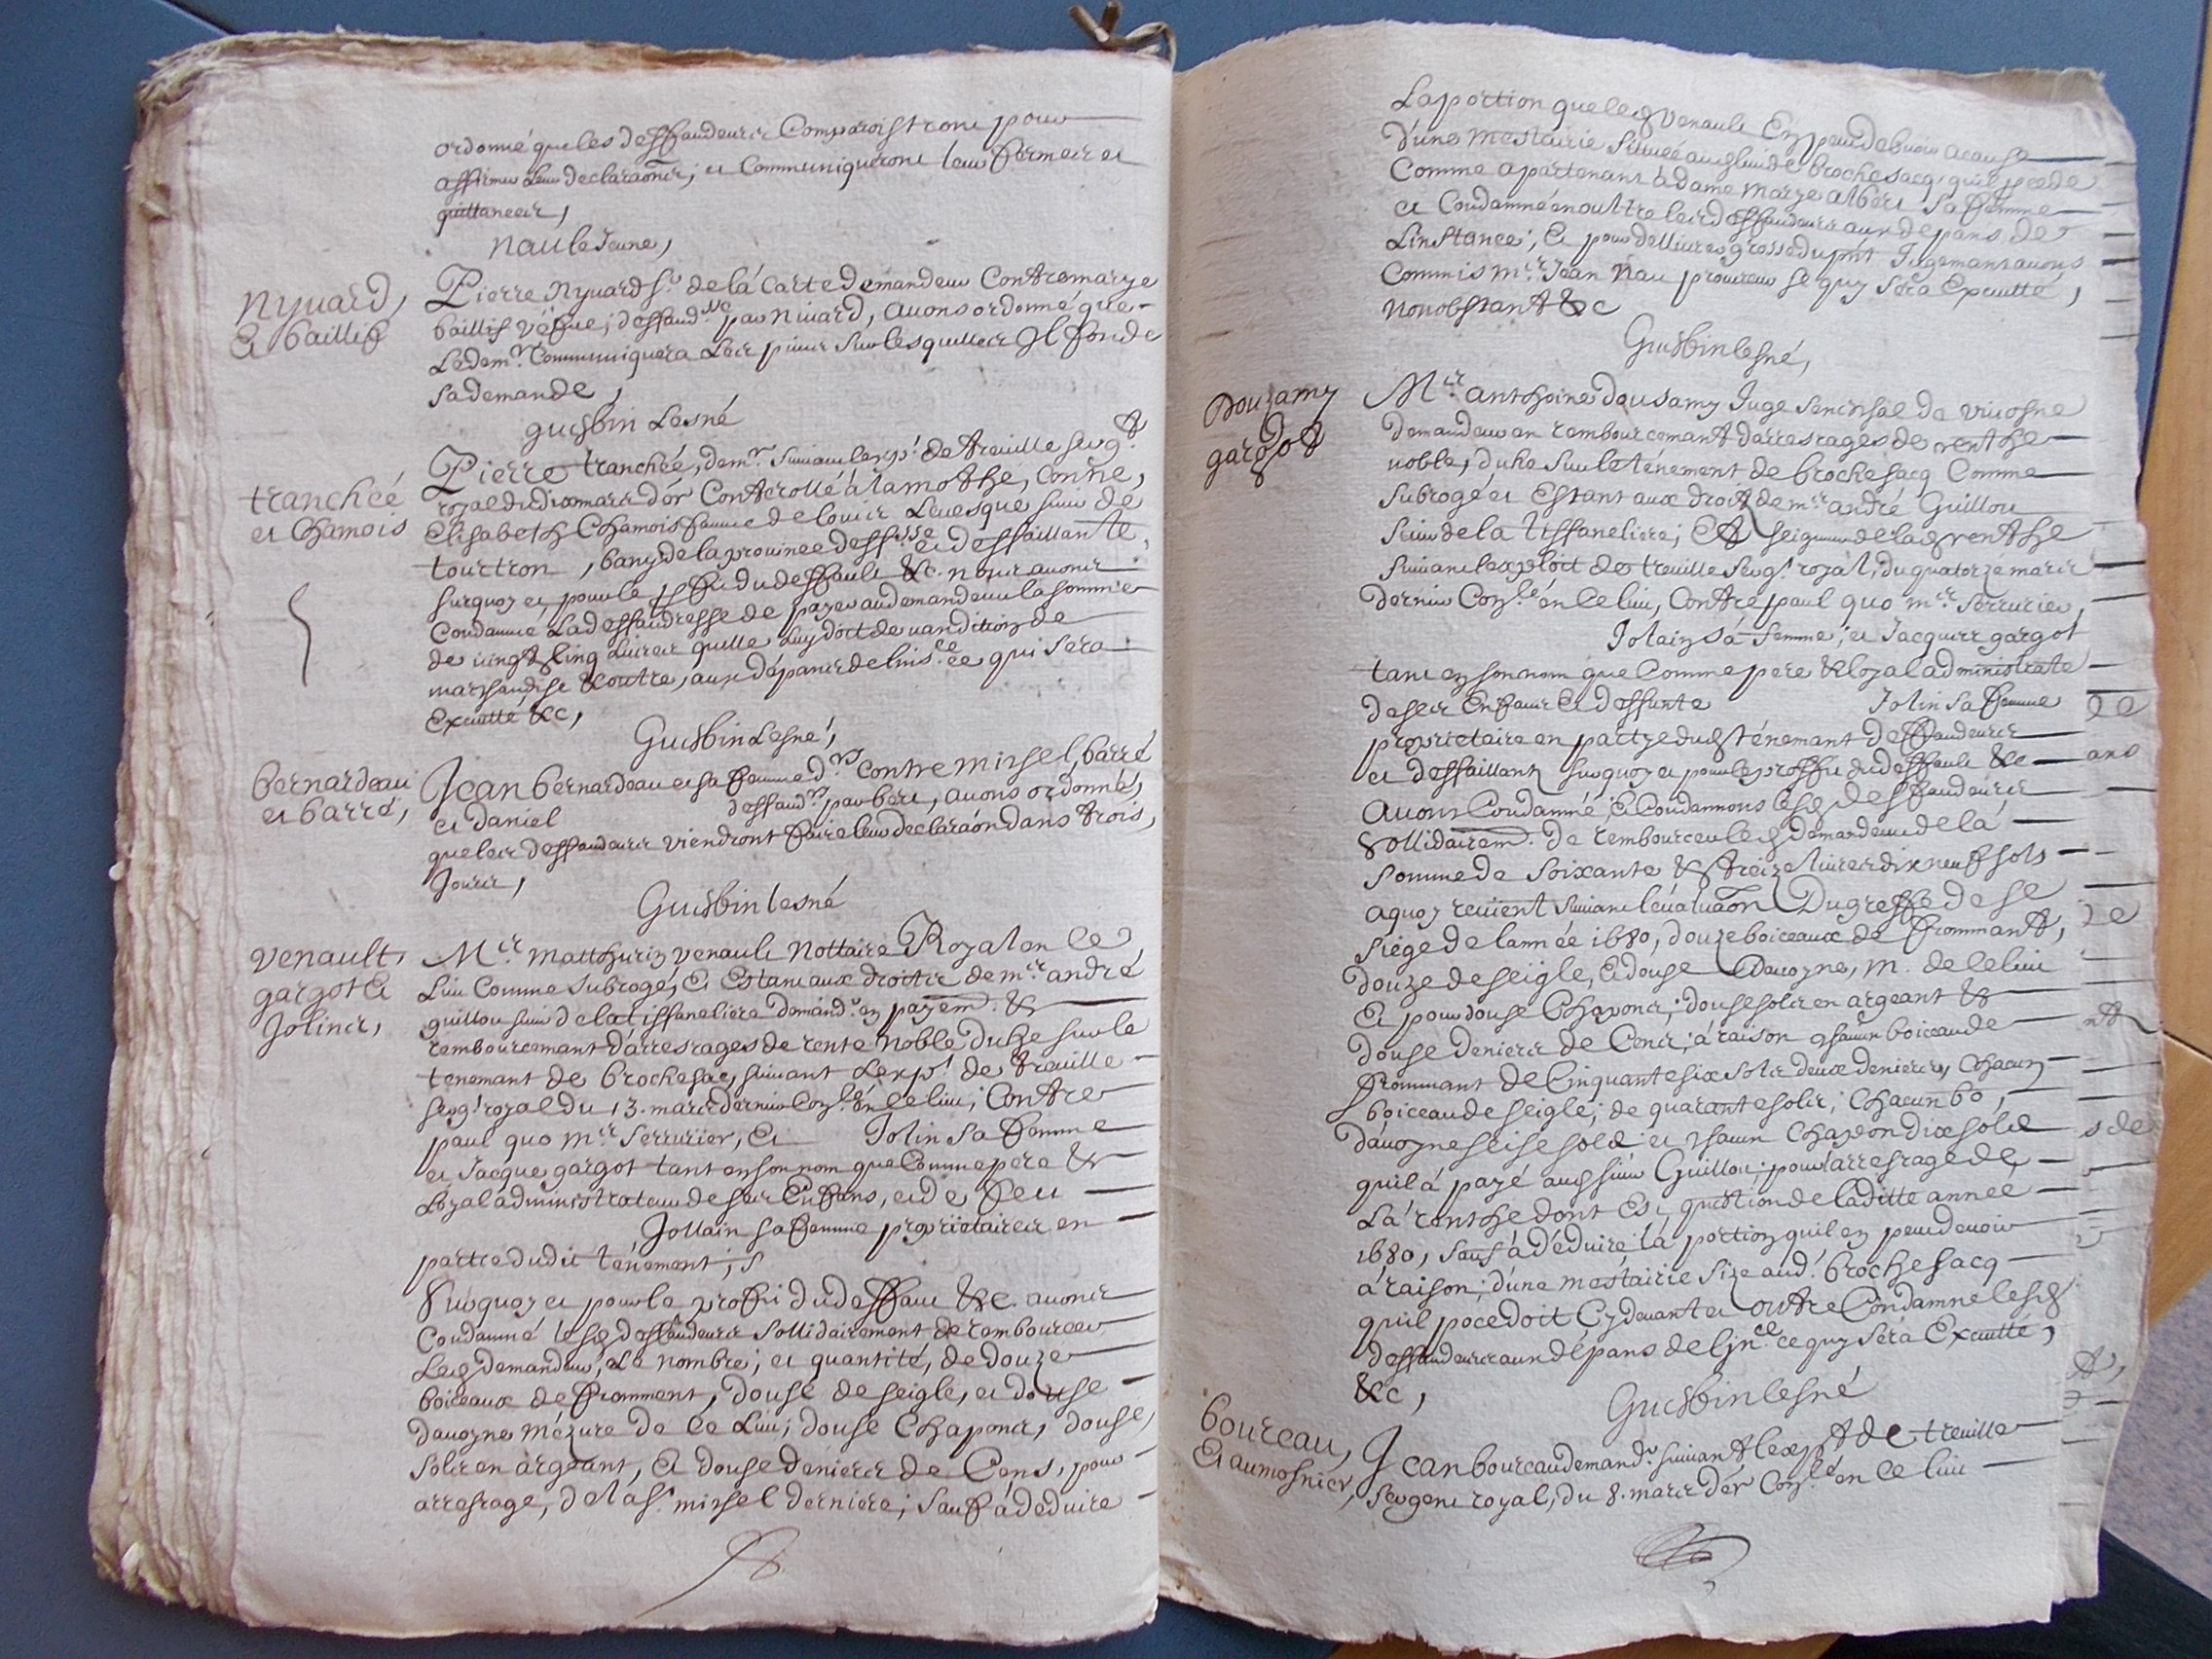 ordonné que les deffandeurs Comparoistront pour
affirmer leur declaraõns, et Communiqueront leur fermes et
quittances,
Nau le Jeune,
Nyuard,
Et baillif
Pierre Nyuard sr de la Carte demandeur Contre marye
baillif vefue, deffandsse par Niuard, auons ordonné que
Ledemr Communiquera les pieces sur lesquelles Il fonde
sa demande,
Guesbin Lesné
tranchée
et Chamois
Pierre tranchée, demr suiuant lexpt de treuille sergt
royal du mars der Controllé à la mothe, Contre,
Elisabeth Chamois femme de louis Leuesque sieur de
tourtron, bany de la prouince deffsse et deffaillante,
surquoy et pour le proffit du deffault &c. nous auons
Condamné La deffandresse de payer au demandeur la somme
de uingt & cinq liures quelle luy doit de uandition de
marchandise & outre, aux dépans de linsce ce qui sera
Exécutté &c,
Guesbin Lesné,
bernardeau
et barré,
Jean bernardeau et sa femme drs contre michel barré
et daniel deffandrs par beri, auons ordonné,
que les deffandeurs viendront faire leur declaraõn dans trois,
Jours,
Guesbin lesné
Venault,
gargot Et
Jolins,
Mre Matthurin Venault Nottaire Royal en ce
Lieu Comme subrogé, Et Estant aux droits de mre andré
guillou sieur de la tiffaneliere demandr en payemt &
rembourcemant darresrages de rente noble duhe sur le
tenemant de brochesac, suiuant Lexpt de treuille
sergt royal du 13. mars dernier Conlé en ce lieu; Contre
paul quo mre serrurier, Et Jolin sa femme
et Jacques gargot tant en son nom que Comme pere &
Loyal administrateur de ses Enfans, et de feu
Jollain sa femme proprietaires en
partie dudit ténement; s
Surquoy et pour le proffit du deffaut &c. auons
Condamné lesd deffandeurs sollidairement de rembourcer
Led demandeur, Le nombre, et quantité, de douze
boiceaux de fromment, douse de seigle, et douse
dauoyne mézure de Ce Lieu, douse Chapons, douse,
sols en argeant, Et douse deniers de Cens, pour
arresrage, de la st michel derniere; sauf à deduire
La portion que led venault En peut debuoir a cause
d'une mestairie situee au lieu de brochesacq quil pocede
Comme apartenant à dame marye albert sa femme
et Condamné en oultre les deffandeurs aux depans de
L'instance; Et pour dellivrer grosse du pnt Jugemant auons
Commis mre Jean Nau procureur Ce quy sera Executté,
nonobstant &c
Guesbin lesné,
Douzamy
gargot
Mre anthoine dousamy Juge senechal de vicosne
demandeur en rembourcemant darresrages de renthe
noble, duhe sur le ténement de brochesacq Comme
subrogé et Estant aux droits de mre andré Guillou
sieur de la tiffaneliere, Et seigneur de lad renthe
suiuant lexploit de treuille sergt royal, du quatorze mars
dernier Conlé en ce lieu, Contre paul quo mre serrurier,
Jolain sa femme, et Jacques gargot
tant en son nom que Comme pere & loyal administrateur
de ses Enfans Et deffunte Jolin sa femme
proprietaire en partye dud ténemant deffandeurs
et deffaillans surquoy et pour le proffit du deffault &c
auons Condamné, Et Condamnons lesd deffandeurs
sollidairemt de rembourcer led demandeur de la
somme de soixante & treize liures dix neuf sols
aquoy reuient suiuant leualuaõn Du greffe de se
siege de lannée 1680, douze boiceaux de frommant,
douze de seigle, Et douse Dauoyne, m. de ce lieu
Et pour douse Chapons, douse sols en argeant &
douse deniers de Cens, à raison chacun boiceau de
frommant de Cinquante six sols deux deniers, Chacun
boiceau de seigle, de quarante sols, Chacun bo,
dauoyne seise sols et chacun Chapon dix sols
quil à payé aud sieur Guillou, pour larresrage de
La renthe dont Est question de laditte année
1680, sauf à déduire, la portion quil en peut deuoir
à raison, d'une mestairie size aud. brochesacq
quil pocedoit Cy deuant et oultre Condamné lesd
deffandeurs aux dépans de lince ce quy sera Executté,
&c,
Guesbin lesné
boureau,
Et aumosnier,
Jean boureau demandr suiuant lexpt de treuille
sergent royal, du 8. mars der Conlé en ce lieu